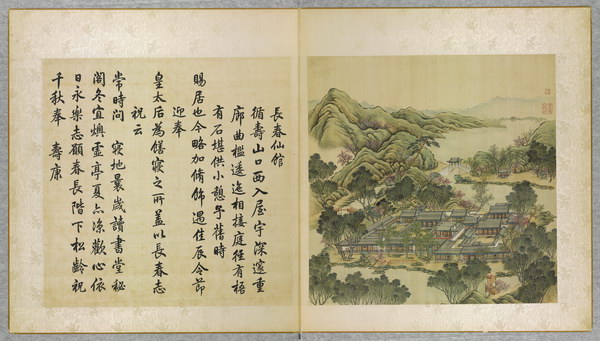 長春仙館
循壽山口西入屋宇深邃重
廊曲檻逶迤相接庭徑有梧
有石堪供小憩予舊時
賜居也今略加脩飾遇佳辰令節
迎奉
皇太后為饍寢之所蓋以長春志
祝云
常時問 寢地曩歲讀書堂秘
閣冬宜燠靈亭夏亦凉歡心依
日永樂志願春長階下松齡祝
千秋奉 壽康